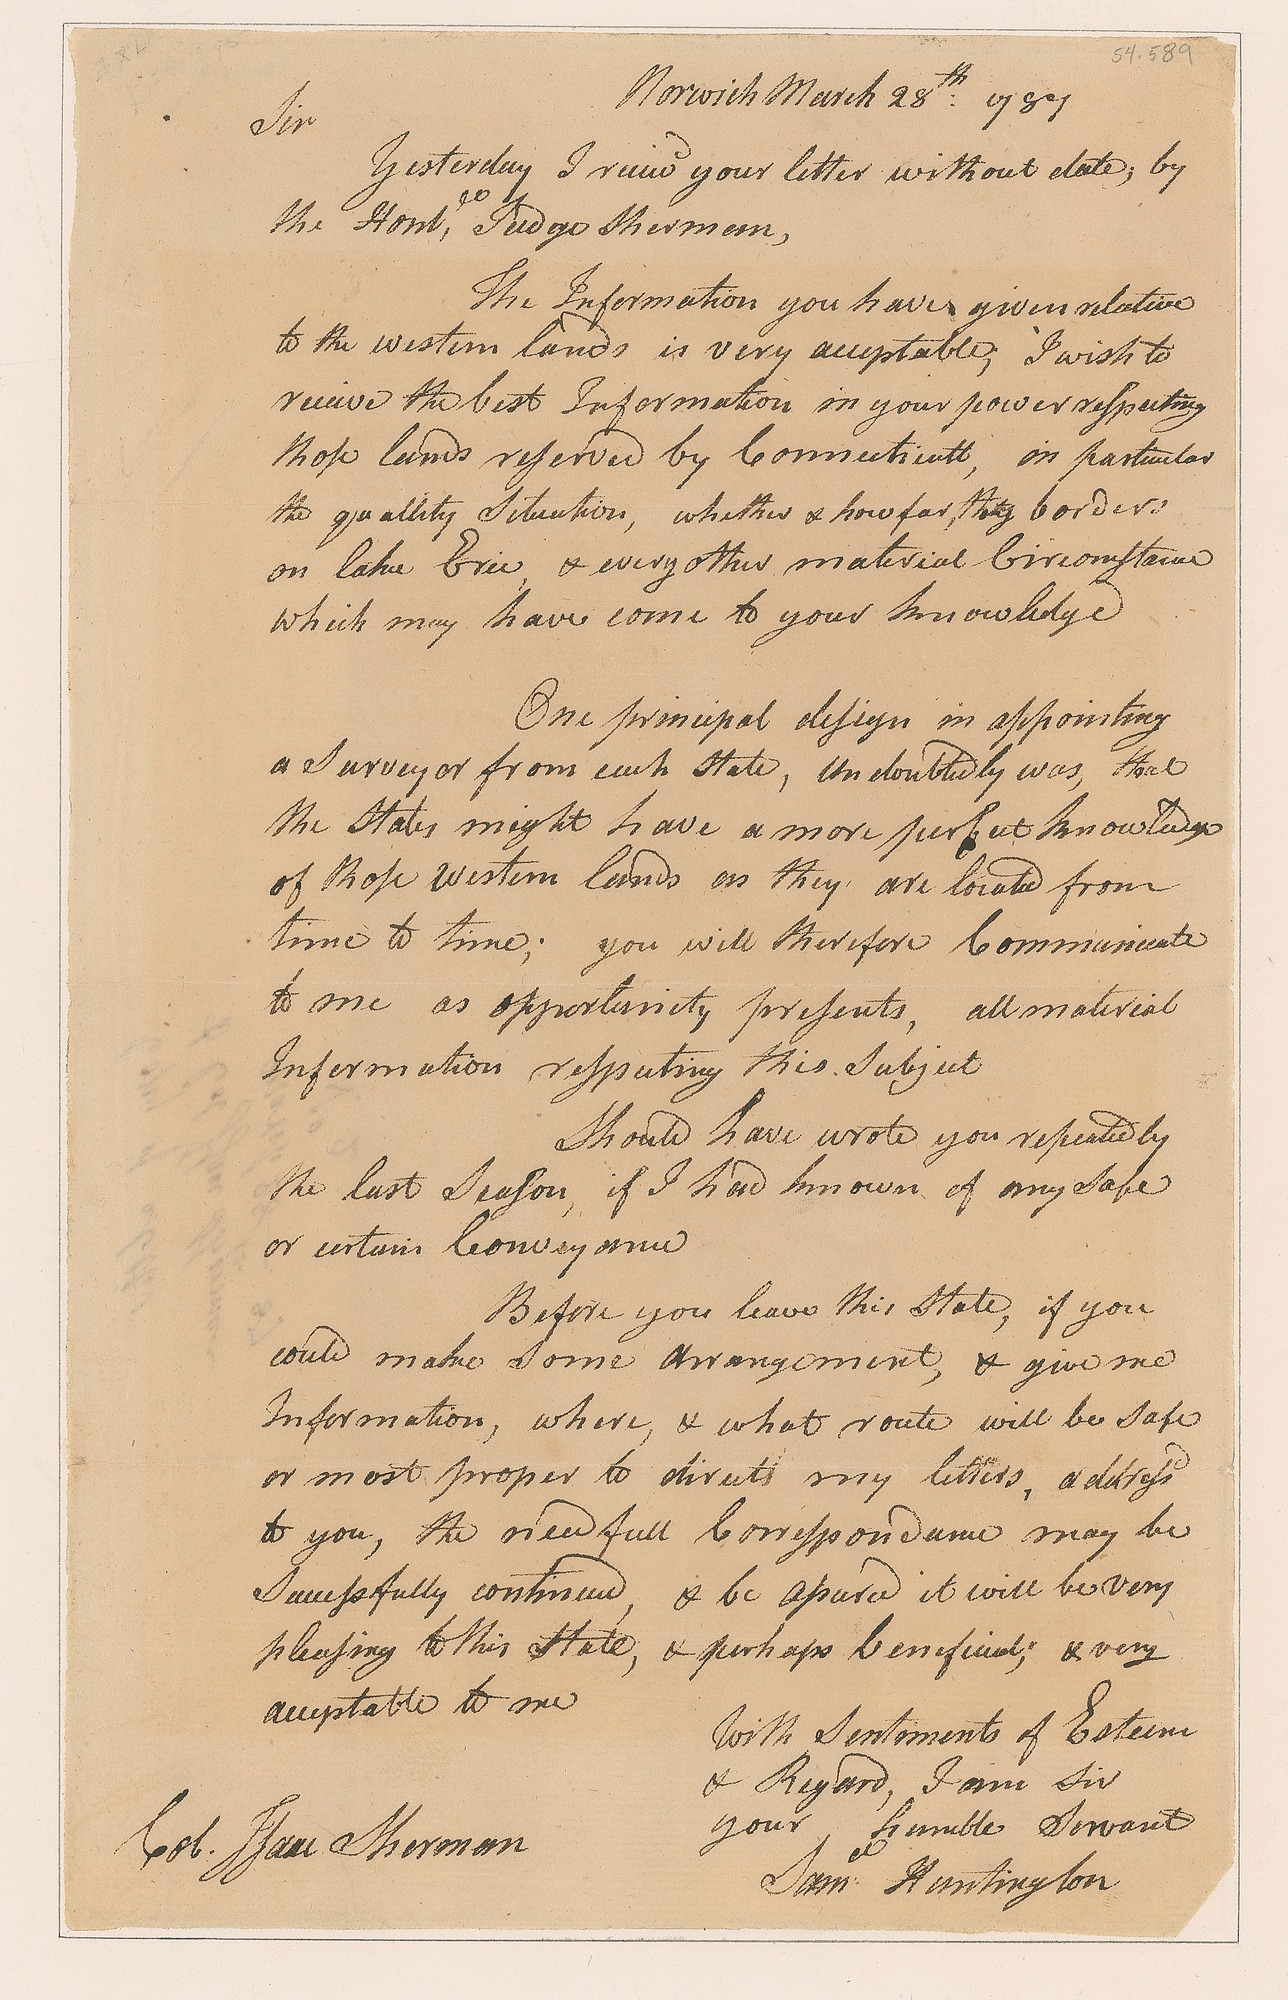 54.589
Norwich March 28th: 1787
Sir
Yesterday I receivd your letter without date, by
the Honble, Judge Sherman,
The Information you have given relative
to the western lands is very acceptable; I wish to
receive the best Information in your power respecting
those lands reserved by Connecticutt, in particular
the quallity Situation, whether & how far, they borders
on lake Erie, & every other material Circomstance
which may have come to your knowledge
One principal design in appointing
a Surveyor from each State, undoubtedly was, that
the States might have a more perfect knowledge
of those western lands as they are located from
time to time; you will therefore Communicate
to me as opportunity presents, all material
Information respecting this Subject
Should have wrote you repeatedly
the last Season, if I had known of any Safe
or certain Conveyance
Before you leave this State, if you
could make Some Arrangement, & give me
Information, where, & what route will be Safe
or most proper to direct my letters, addressd
to you, the needfull Correspondance may be
Sucessfully continued, & be asured it will be very
pleasing to this State, & perhaps beneficial; & very
acceptable to me
With Sentiments of Esteem
& Regard, I am Sir
your humble Servant
Saml Huntington
Col. Isaac Sherman